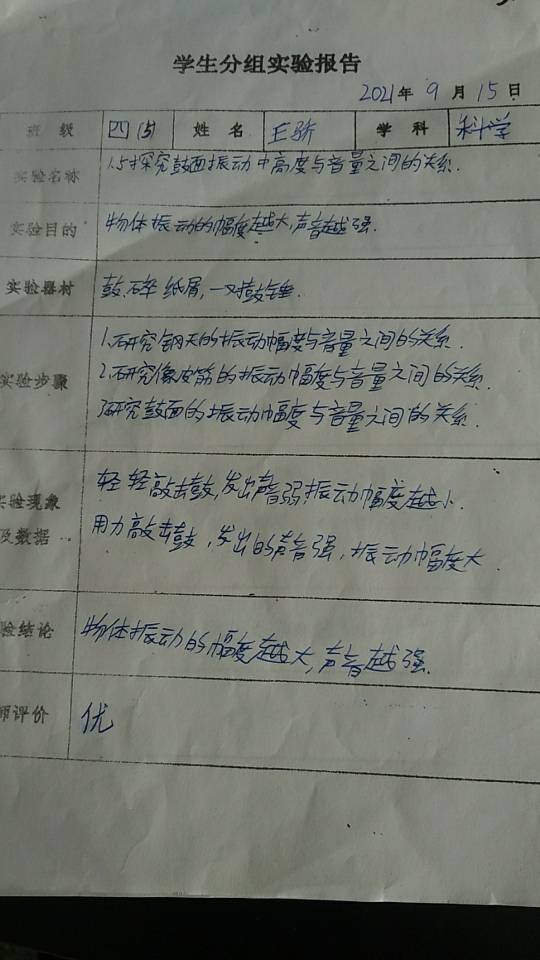 学生分组实验报告
2021年9月15日
班级 四(5) 姓名 王骄 学科 科学
实验名称 1.5探究鼓面振动巾高度与音量之间的关系.
实验目的 物体振动的幅度越大,声音越强.
实验器材 鼓.碎纸屑,一对鼓锤.
实验步骤 1.研究钢尺的振动幅度与音量之间的关系.
2.研究像皮筋的振动幅度与音量之间的关系.
3研究鼓面的振动幅度与音量之间的关系.
实验现象 轻轻敲击鼓,发出声音弱,振动幅度越小.
及数据 用力敲击鼓,发出的声音强,振动幅度大.
验结论 物体振动的幅度越大,声音越强.
师评价 优